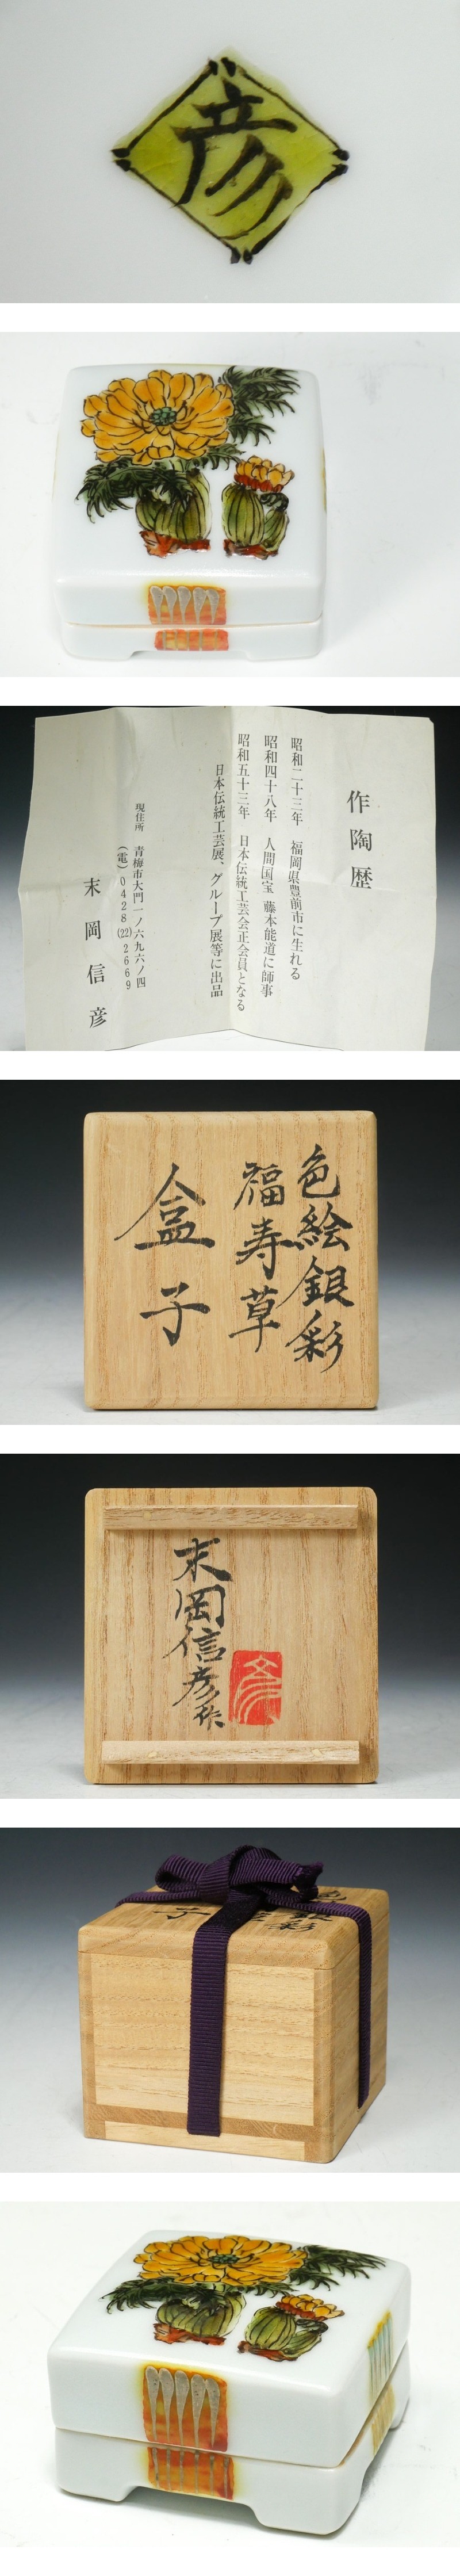 彦
作陶歴
昭和二十三年 福岡県豊前市に生れる
昭和四十八年 人間国宝 藤本能道に師事
昭和五十三年 日本伝統工芸会正会員となる
日本伝統工芸展、グループ展等に出品
現住所 青梅市大門一ノ六九六ノ四
(電)0428(22)2669
末岡信彦
色絵銀彩
福寿草
盒子
末岡信彦作
彦
銀彩